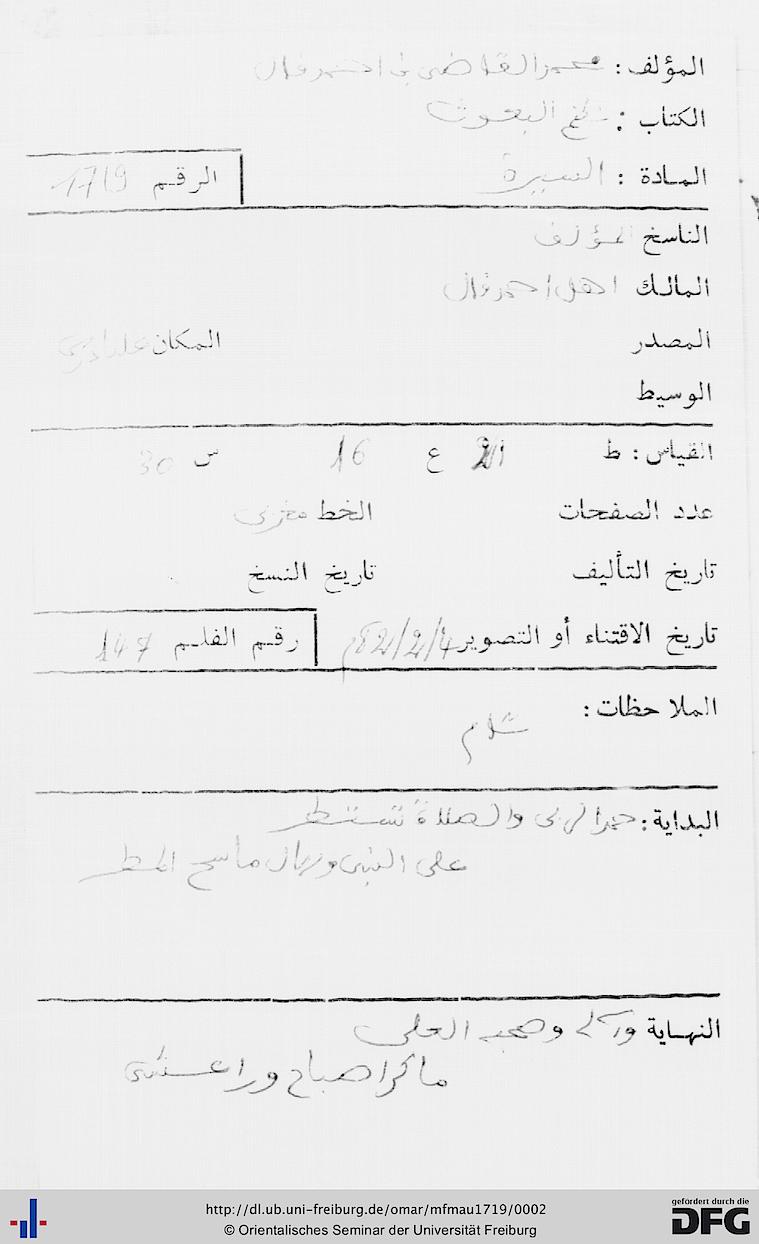 المؤلف : محمد القاضي بن احمد فال
الكتاب : نظم البعوث
المادة : السيرة
الرقم 1719
الناسخ المؤلف
المالك اهل احمد فال
المصدر
المكان
الوسيط
القياس : ط 21 ع 16 س 30
عدد الصفحات
الخط مغربي
تاريخ التأليف
تاريخ النسخ
تاريخ الاقتناء أو التصوير
رقم الفلم 147
الملاحظات :
البداية : حمدا لربي والصلاة تستطر
على النبي ما سح المطر
النهاية وآله وصحبه
ما كر اصباح
http://dl.ub.uni-freiburg.de/omar/mfmau1719/0002
© Orientalisches Seminar der Universität Freiburg
gefördert durch die
DFG